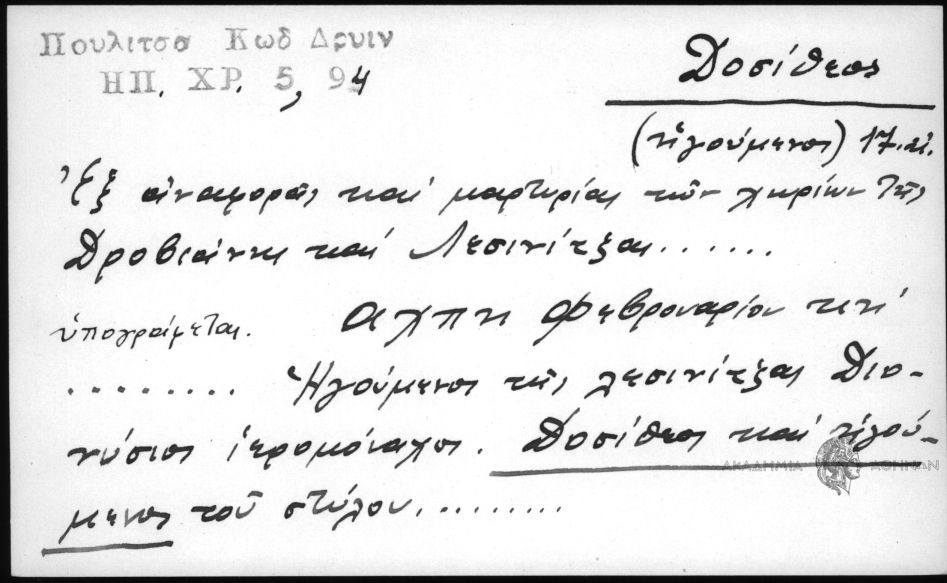 Πουλιτσα Κωδ Δρυιν
ΗΠ. ΧΡ. 5, 94
Δοσίθεος
(ἡγούμενος) 17. αἰ.
Ἐξ ἀναφορᾶς καὶ μαρτυρίας τῶν χωρίων τῆς
Δροβιάνης καὶ Λεσινίτζας......
ὑπογράφεται. αχπη Φεβρουαρίου
......... Ἡγούμενος τῆς λεσινίτζας Διο-
νύσιος ἱερομόναχος. Δοσίθεος καὶ ἡγού-
μενος τοῦ στύλου.........
ΑΚΑΔΗΜΙΑ ΑΘΗΝΩΝ